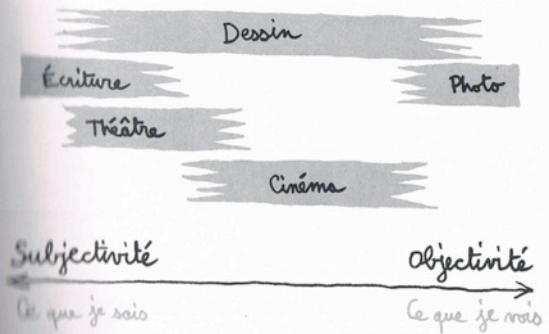 Dessin
Écriture
Photo
Théâtre
Cinéma
Subjectivité
Objectivité
Ce que je sais
Ce que je vois